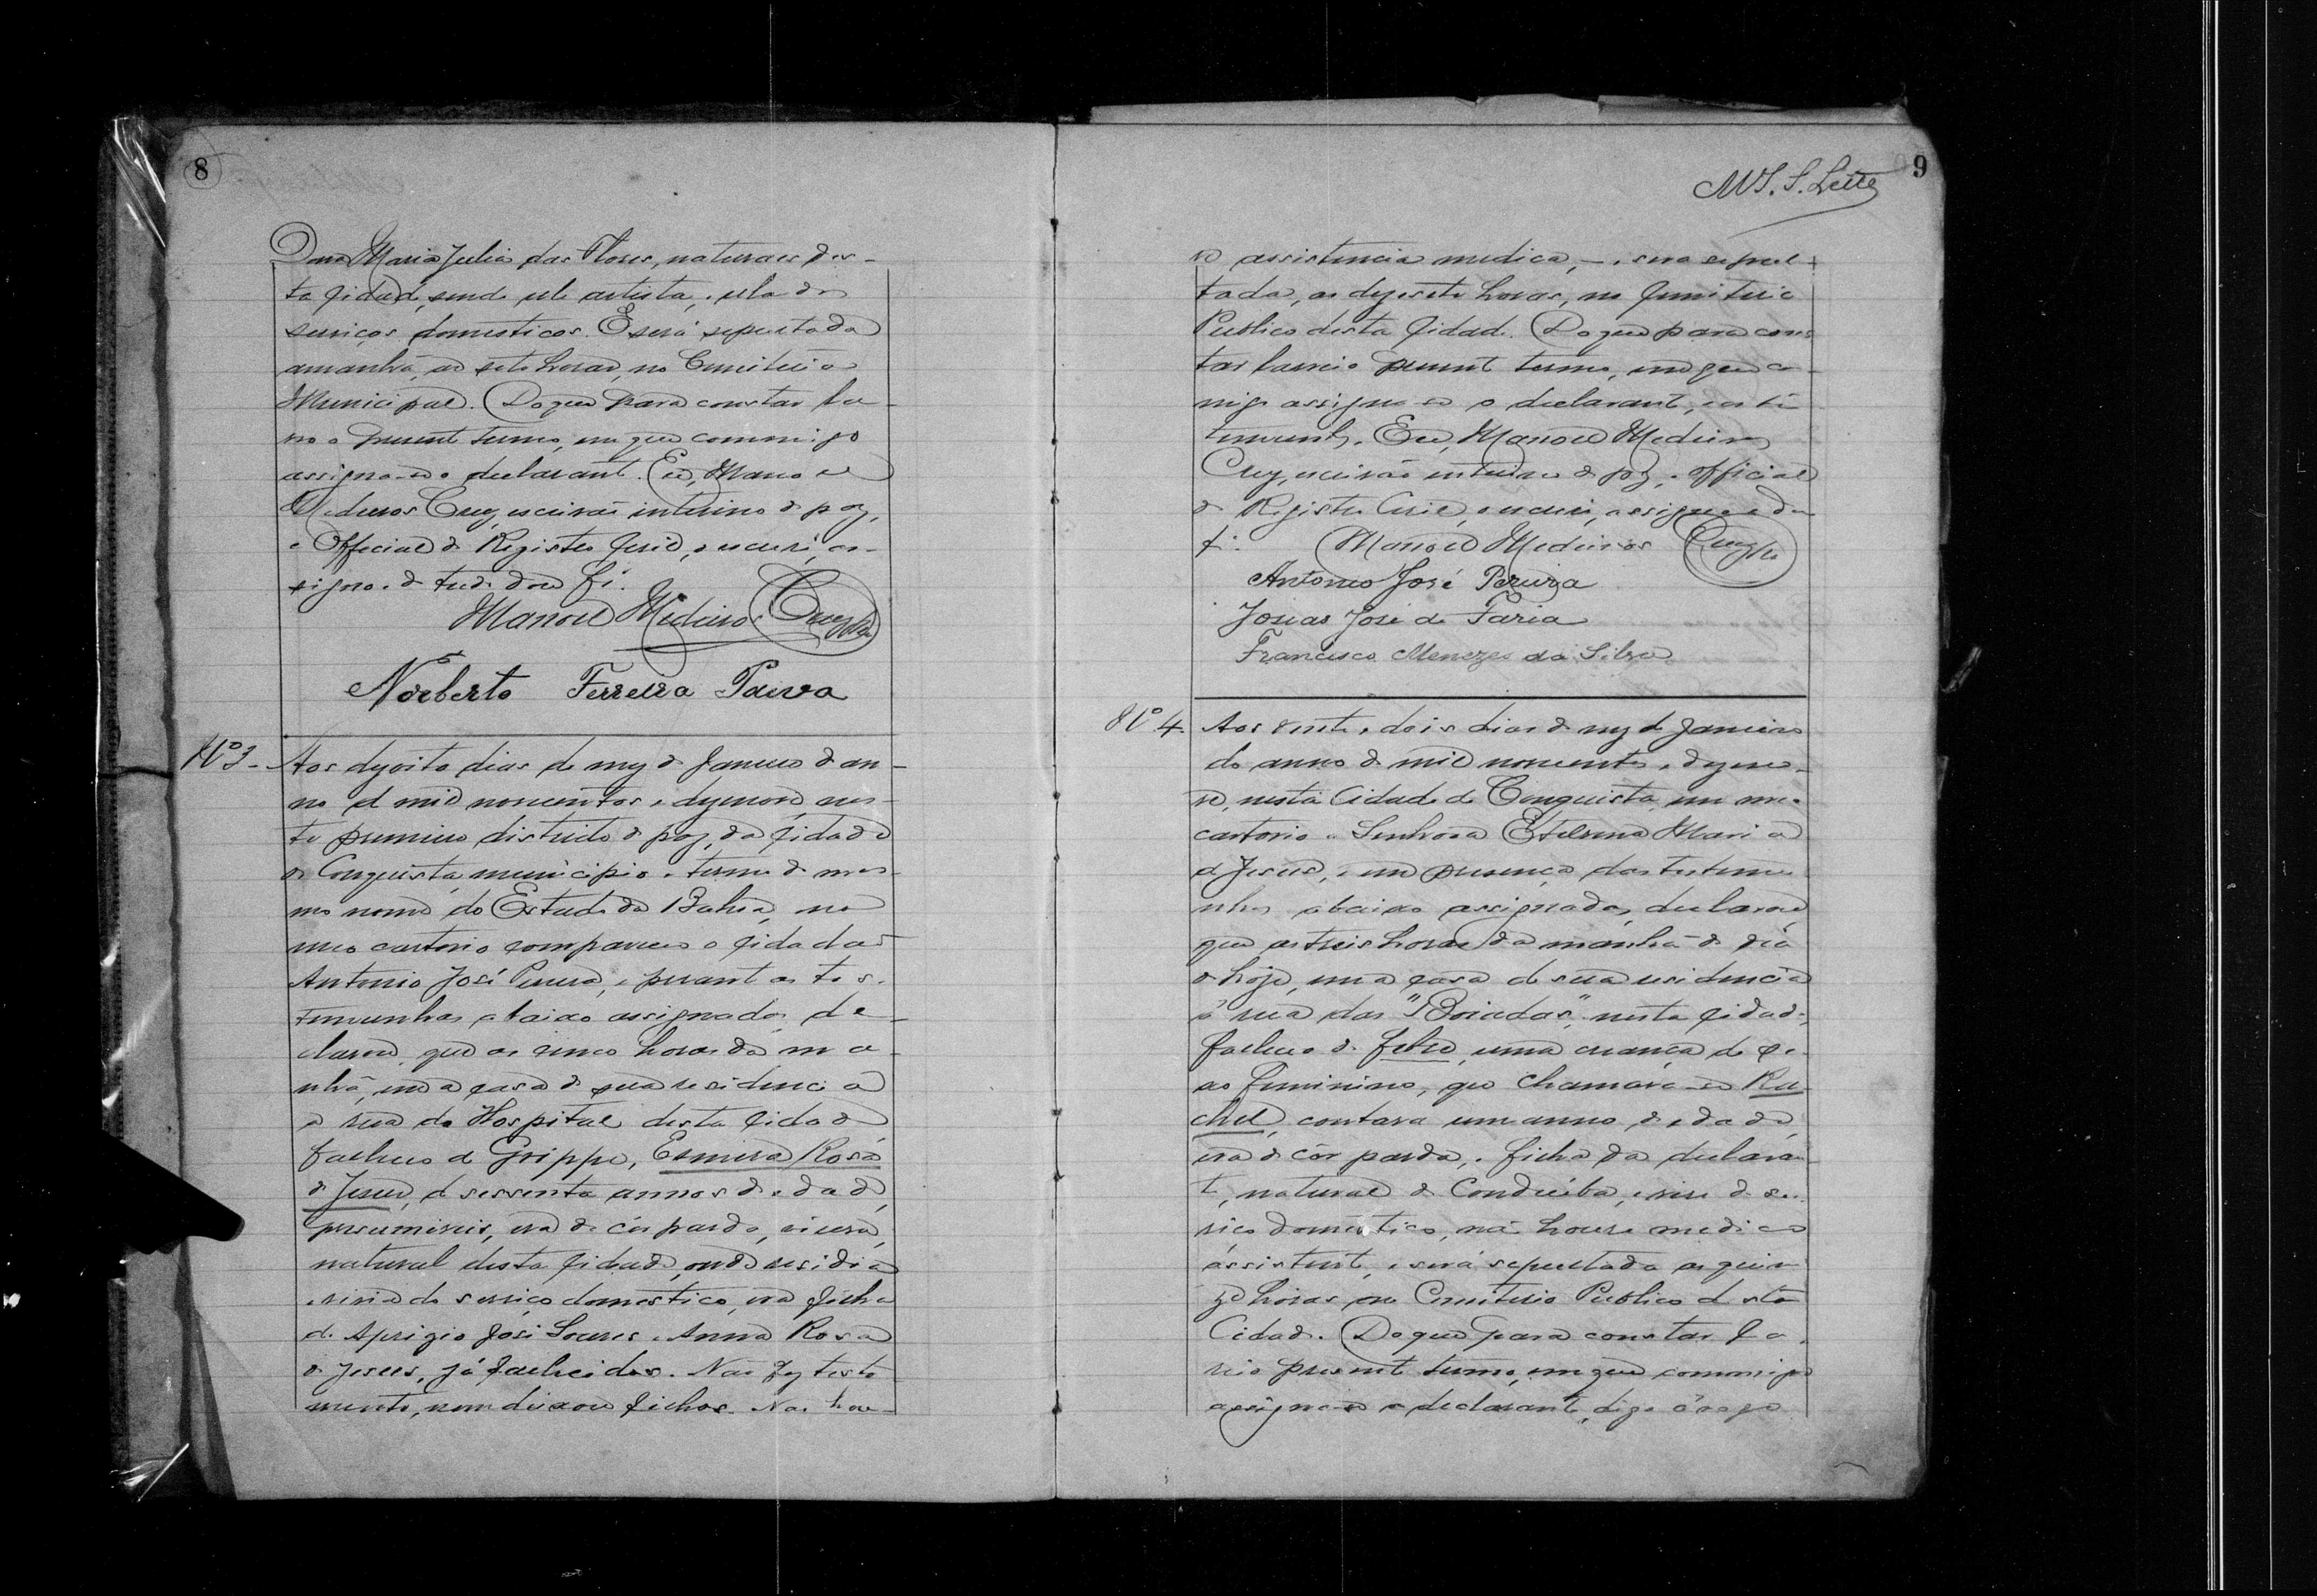 8
Dona Maria Julia das Flores, naturaes des-
ta cidade, sendo ele artista, e ela de
serviços domesticos. E será sepultada
amanhã, as sete horas, no Cemiterio
Municipal. Do que para constar la-
vro o present termo, em que commigo
assigna-se o declarant. Eu, Manoel
Medeiros Cruz, escrivão interino de paz,
e Official do Registro Civil, o escrevi, as-
signo e de tudo dou fé.
Manoel Medeiros Cruz
Norberto Ferreira Paiva
Nº 3 - Aos dezoito dias do mez de Janeiro do an-
no de mil novecentos e dezenove, nes-
te primeiro districto de paz, da cidade
de Conquista, municipio e termo do mes-
mo nome do Estado da Bahia, no
meu cartorio compareceu o cidadão
Antonio José Pereira, e perant as tes-
temunhas abaixo assignadas, de-
clarou, que as cinco horas da ma-
nhã, em a casa de sua residencia
a rua do Hospital desta cidade
falleceu de Grippe, Esmera Rosa
de Jesus, de sessenta annos de edade,
presumiveis, era de côr parda, viuva,
natural desta cidade, onde residia
e vivia do serviço domestico, era filha
de Aprigio José Soares e Anna Rosa
de Jesus, já fallecidos. Não fez testa
mento, nem deixou filhos. Não hou-
9
M. S. S. Leite
ve assistencia medica, - e sera sepul-
tada, as dezesete horas, no Cemiterio
Publico desta cidade. Do que para cons
tar lavrei o present termo, em que co-
migo assigna-se o declarant, e as tes
temunhas. Eu, Manoel Medeiros
Cruz, escrivão interino de paz, e official
do Registro Civil, o escrevi, assigno e dou
fé. Manoel Medeiros Cruz
Antonio José Pereira
Josias José de Faria
Francisco Menezes da Silva
Nº 4. Aos vinte e dois dias do mez de Janeiro
do anno de mil novecentos e dezeno-
ve, nesta Cidade de Conquista, em meu
cartorio a Senhora Etelvina Maria
de Jesus, e em presença das testemu
nhas abaixo assignadas, declarou
que as treis horas da manhã do dia
de hoje, em a casa de sua residencia
á rua das "Boiadas", nesta cidade,
falleceu de febre, uma criança do se-
xo feminino, que chamava-se Ra-
chel, contava um anno de edade,
era de côr parda, e filha da declaran
te, natural de Condeúba, e vive do ser
viço domestico, não houve medico
assistent, e será sepultada as quin
ze horas, no Cemiterio Publico desta
Cidade. Do que para constar la-
vrei o present termo, em que commigo
assigna-se a declarante, digo á rogo